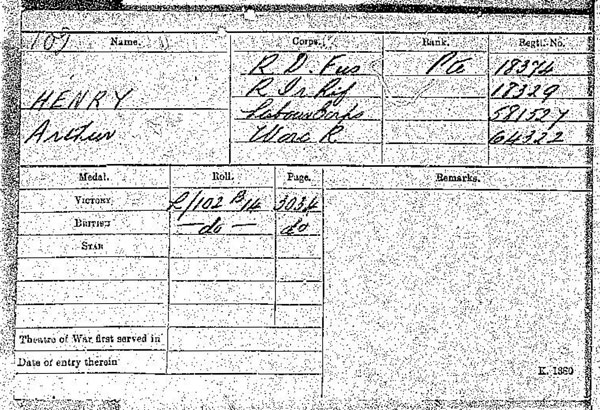 Name. Corps. Rank. Regtl. No.
R D. Fus Pte 18374
HENRY R Ir Rif 18329
Labour Corps 581527
Arthur Worc R. 64322
Medal. Roll. Page. Remarks.
VICTORY L/102 B14 3034
BRITISH — do — do
STAR
Theatre of War first served in
Date of entry therein
K. 1380